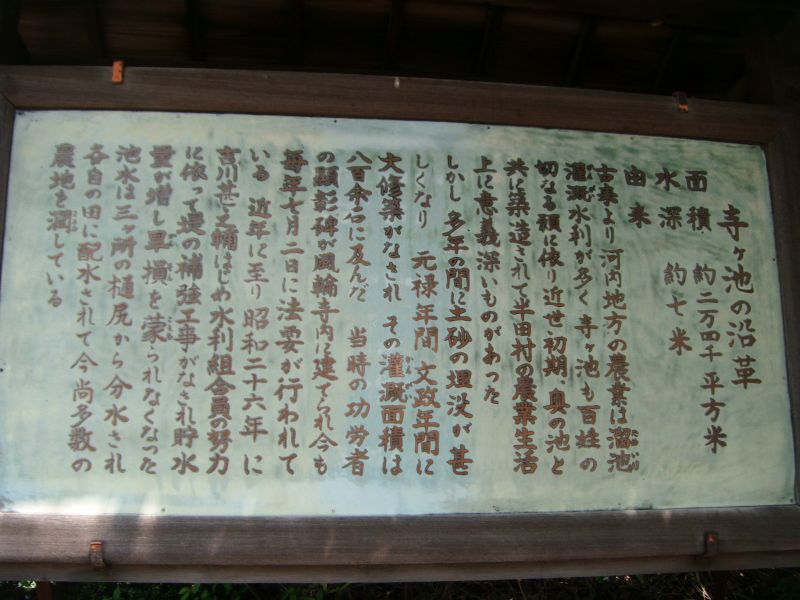 寺ヶ池の沿革
面積 約二万四千平方米
水深 約七米
由来
古来より河内地方の農業は溜池
灌漑水利が多く寺ヶ池も百姓の
切なる願に依り近世初期 奥の池と
共に築造されて半田村の農業生活
上に意義深いものがあった
しかし多年の間に土砂の埋没が甚
しくなり 元禄年間 文政年間に
大修築がなされ その灌漑面積は
八百余石に及んだ 当時の功労者
の顕彰碑が風輪寺内に建てられ今も
毎年七月二日に法要が行われて
いる 近年に至り 昭和二十六年に
吉川甚之輔はじめ水利組合員の努力
に依って堤の補強工事がなされ貯水
量が増し旱損を蒙られなくなった
池水は三ヶ所の樋尻から分水され
各自の田に配水されて今尚多数の
農地を潤している